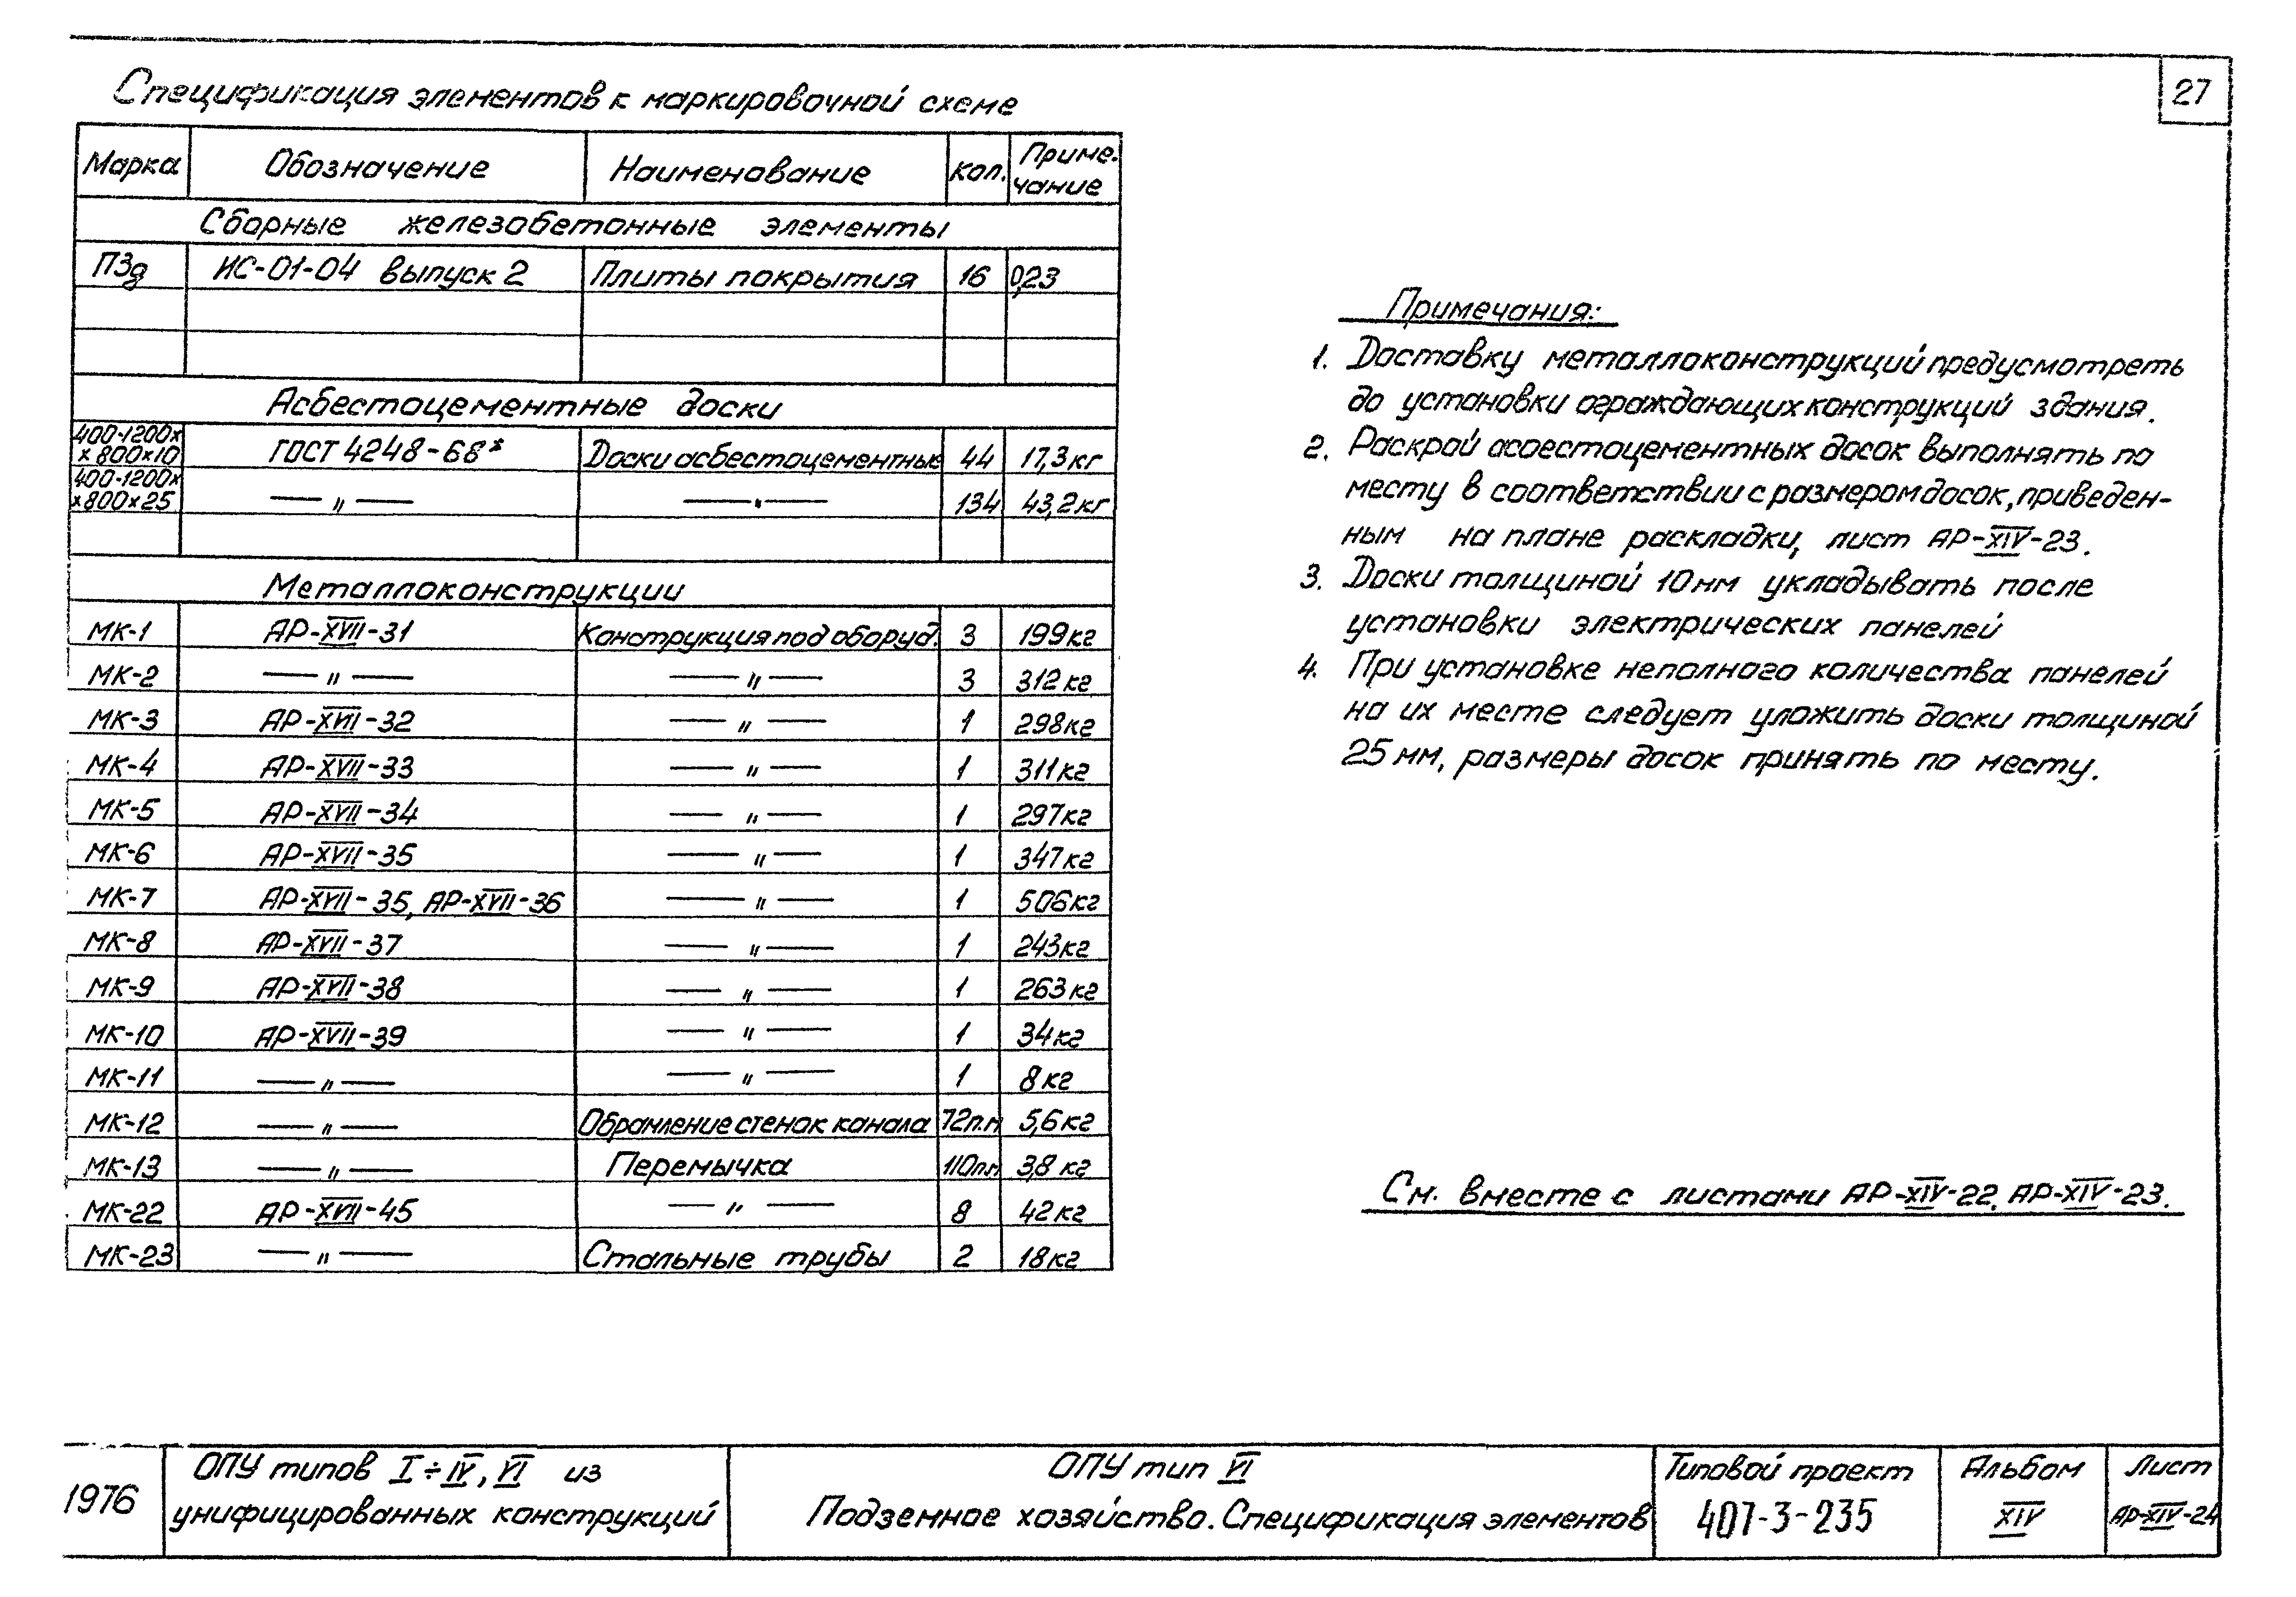 27
Спецификация элементов к маркировочной схеме
Марка Обозначение Наименование Кол. Приме-
чание
Сборные железобетонные элементы
П3д ИС-01-04 выпуск 2 Плиты покрытия 16 0,23
Асбестоцементные доски
400-1200х
х800х10 ГОСТ 4248-68* Доски асбестоцементные 44 17,3кг
400-1200х
х800х25 —〃— —〃— 134 43,2кг
Металлоконструкции
МК-1 АР-XVII-31 Конструкция под оборуд. 3 199кг
МК-2 —〃— —〃— 3 312кг
МК-3 АР-XVII-32 —〃— 1 298кг
МК-4 АР-XVII-33 —〃— 1 311кг
МК-5 АР-XVII-34 —〃— 1 297кг
МК-6 АР-XVII-35 —〃— 1 347кг
МК-7 АР-XVII-35, АР-XVII-36 —〃— 1 506кг
МК-8 АР-XVII-37 —〃— 1 243кг
МК-9 АР-XVII-38 —〃— 1 263кг
МК-10 АР-XVII-39 —〃— 1 34кг
МК-11 —〃— —〃— 1 8кг
МК-12 —〃— Обрамление стенок канала 72п.м 5,6кг
МК-13 —〃— Перемычка 110п.м 3,8кг
МК-22 АР-XVII-45 —〃— 8 42кг
МК-23 —〃— Стальные трубы 2 18кг
Примечания:
1. Доставку металлоконструкций предусмотреть
до установки ограждающих конструкций здания.
2. Раскрой асбестоцементных досок выполнять по
месту в соответствии с размером досок, приведен-
ным на плане раскладки, лист АР-XIV-23.
3. Доски толщиной 10мм укладывать после
установки электрических панелей
4. При установке неполного количества панелей
на их месте следует уложить доски толщиной
25мм, размеры досок принять по месту.
См. вместе с листами АР-XIV-22, АР-XIV-23.
1976
ОПУ типов I÷IV, VI из
унифицированных конструкций
ОПУ тип VI
Подземное хозяйство. Спецификация элементов
Типовой проект
407-3-235
Альбом
XIV
Лист
АР-XIV-24